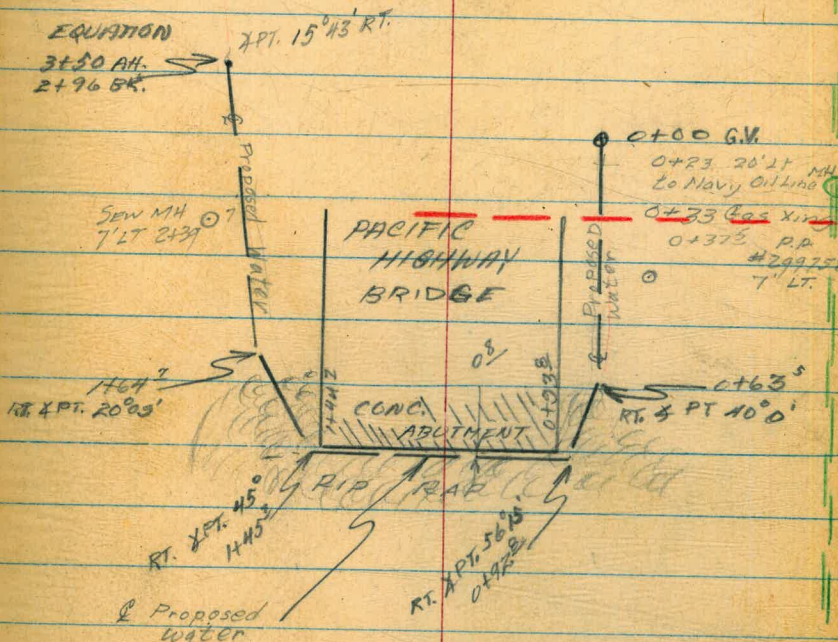 EQUATION
3+50 AH.
2+96 BK.
∡PT. 15°43' RT.
℄ Proposed Water
SEW MH
7' LT 2+39
7
PACIFIC
HIGHWAY
BRIDGE
0+00 G.V.
0+23 20' LT
to Navy Oil Line MH
0+33 Gas Xing
0+37⁵ P.P.
#29975
7' LT.
℄ Proposed
Water
1+64⁷
RT. ∡ PT. 20°09'
0+63⁵
RT. ∡ PT 40°0'
1+44²
0⁸
0+93⁸
CONC.
ABUTMENT
RIP RAP
RT. ∡PT. 45°
1+45³
RT. ∡PT. 56°15'
0+92⁸
℄ Proposed
water